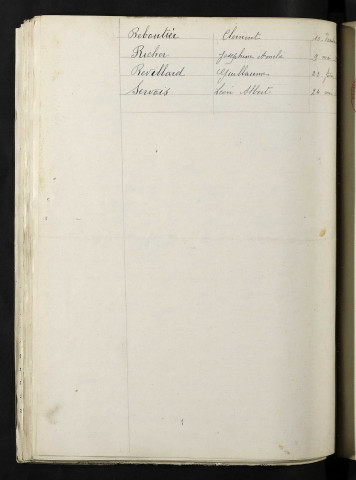 Reboutier Clement 10
Richer Joséphine Amélie 9
Revillard Guillaume 22
Servois Léon Albert 20